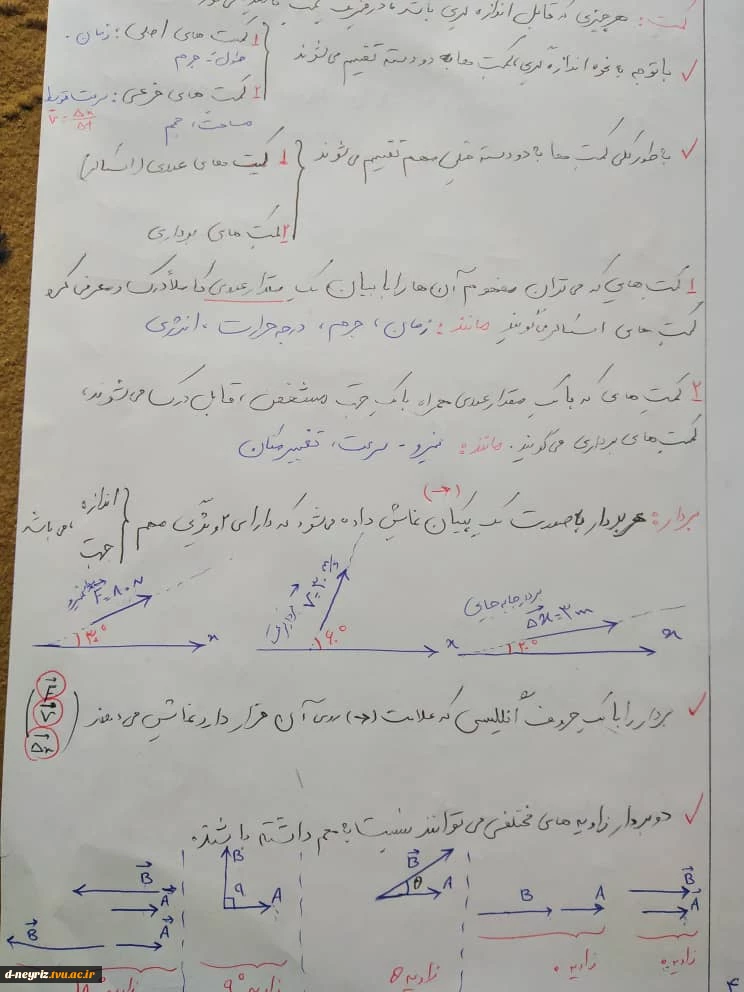 کمیت: هر چیزی که قابل اندازه گیری باشد در فیزیک کمیت
✓ با توجه به نحوه اندازه گیری، کمیت ها به دو دسته تقسیم می‌شوند
1 کمیت های اصلی: زمان.
طول، جرم
2 کمیت های فرعی: سرعت متوسط
مساحت، حجم
v̄ = Δx/Δt
✓ به طور کلی کمیت ها به دو دسته خیلی مهم تقسیم می‌شوند
1 کمیت های عددی (اسکالر)
2 کمیت های برداری
1 کمیت هایی که می‌توان مفهوم آن ها را با بیان یک مقدار عددی کاملاً درک و معرفی کرد
کمیت های اسکالر می‌گویند مانند: زمان، جرم، درجه حرارت، انرژی
2 کمیت های که با یک مقدار عددی همراه با یک جهت مشخص، قابل درک می‌شوند،
کمیت های برداری می‌گویند. مانند: نیرو - سرعت، تغییر مکان
بردار: هر بردار به صورت یک پیکان (→) نمایش داده می‌شود که دارای 2 ویژگی مهم
اندازه
جهت
می باشد
بردار جابه جایی
Δx = ۳ m
۲۰°
x
x
۶۰°
x
F = ۸۰ N
۳۰°
✓ بردار را با یک حروف انگلیسی که علامت (→) روی آن قرار دارد نمایش می‌دهند
F
V
Δx
✓ دو بردار زاویه های مختلفی می‌توانند نسبت به هم داشته باشند.
B
A
زاویه ۰
B A
زاویه ۰
B
θ A
زاویه θ
B
۹۰ A
زاویه ۹۰°
B
A
B A
زاویه ۱۸۰°
۴
d-neyriz.tvu.ac.ir